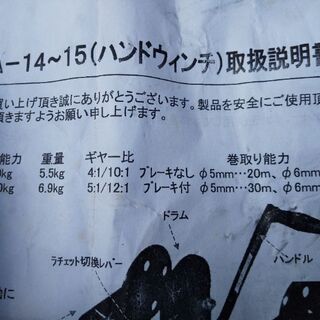 －14～15(ハンドウィンチ)取扱説明書
買い上げ頂き誠にありがとうございます。製品を安全にご使用頂
頂きますようお願い申し上げます。
能力 重量 ギヤー比 巻取り能力
0kg 5.5kg 4:1/10:1 ブレーキなし φ5mm…20m、φ6mm
0kg 6.9kg 5:1/12:1 ブレーキ付 φ5mm…30m、φ6mm
ドラム
ラチェット切換レバー
ハンドル